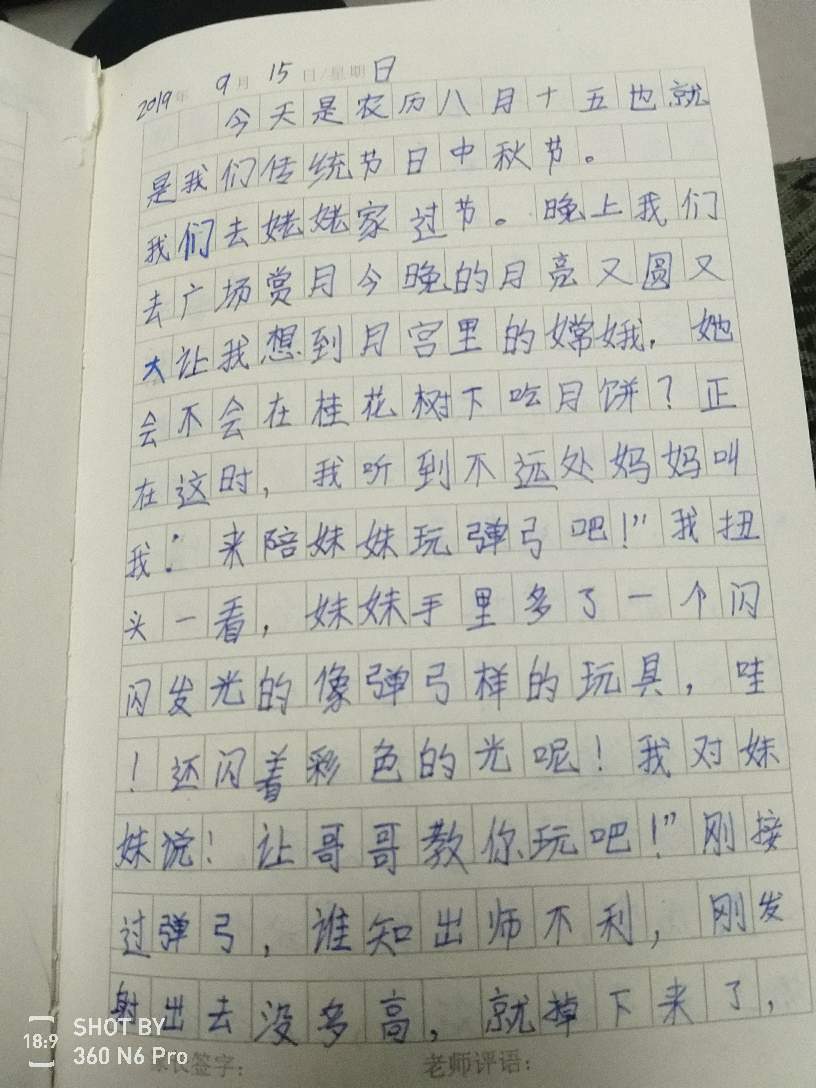 2019年 9月 15日/星期日
今天是农历八月十五也就
是我们传统节日中秋节。
我们去姥姥家过节。晚上我们
去广场赏月今晚的月亮又圆又
大让我想到月宫里的嫦娥，她
会不会在桂花树下吃月饼？正
在这时，我听到不远处妈妈叫
我：来陪妹妹玩弹弓吧！”我扭
头一看，妹妹手里多了一个闪
闪发光的像弹弓样的玩具，哇
！还闪着彩色的光呢！我对妹
妹说！让哥哥教你玩吧！”刚接
过弹弓，谁知出师不利，刚发
射出去没多高，就掉下来了，
家长签字： 老师评语：
18:9 SHOT BY
360 N6 Pro